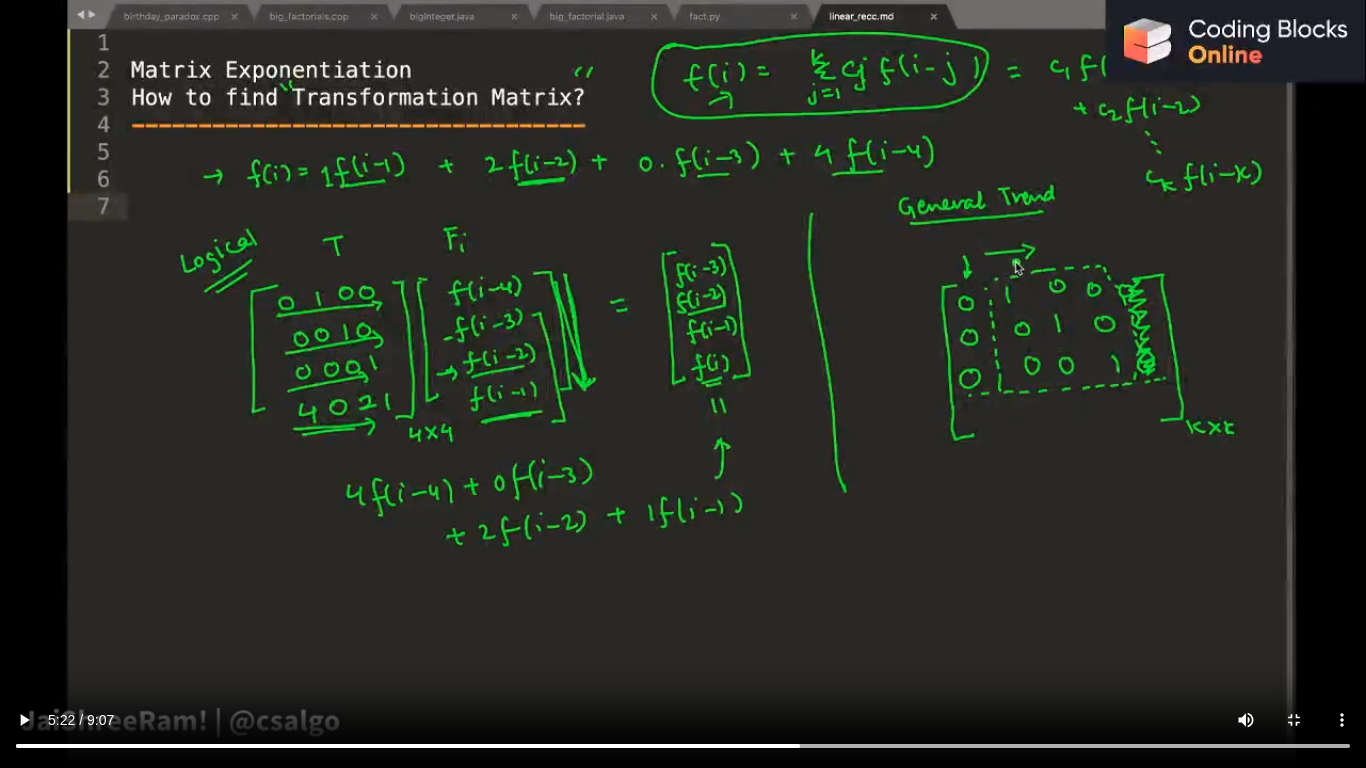 birthday_paradox.cpp × big_factorials.cpp × bigInteger.java × big_factorial.java × fact.py × linear_recc.md ×
Coding Blocks
Online
1
2 Matrix Exponentiation
3 How to find Transformation Matrix?
4 ----------------------------------
5
6
7
f(i) = k Σ j=1 cj f(i-j) = c1 f(
+ c2 f(i-2)
⋮
ck f(i-k)
→ f(i) = 1f(i-1) + 2f(i-2) + 0.f(i-3) + 4f(i-4)
Logical
T Fi
0 1 0 0
0 0 1 0
0 0 0 1
4 0 2 1
4x4
f(i-4)
f(i-3)
→ f(i-2)
f(i-1)
=
f(i-3)
f(i-2)
f(i-1)
f(i)
4f(i-4) + 0f(i-3)
+ 2f(i-2) + 1f(i-1)
General Trend
0 1 0 0
0 0 1 0
0 0 0 1
KxK
JaiShreeRam! | @csalgo
5:22 / 9:07